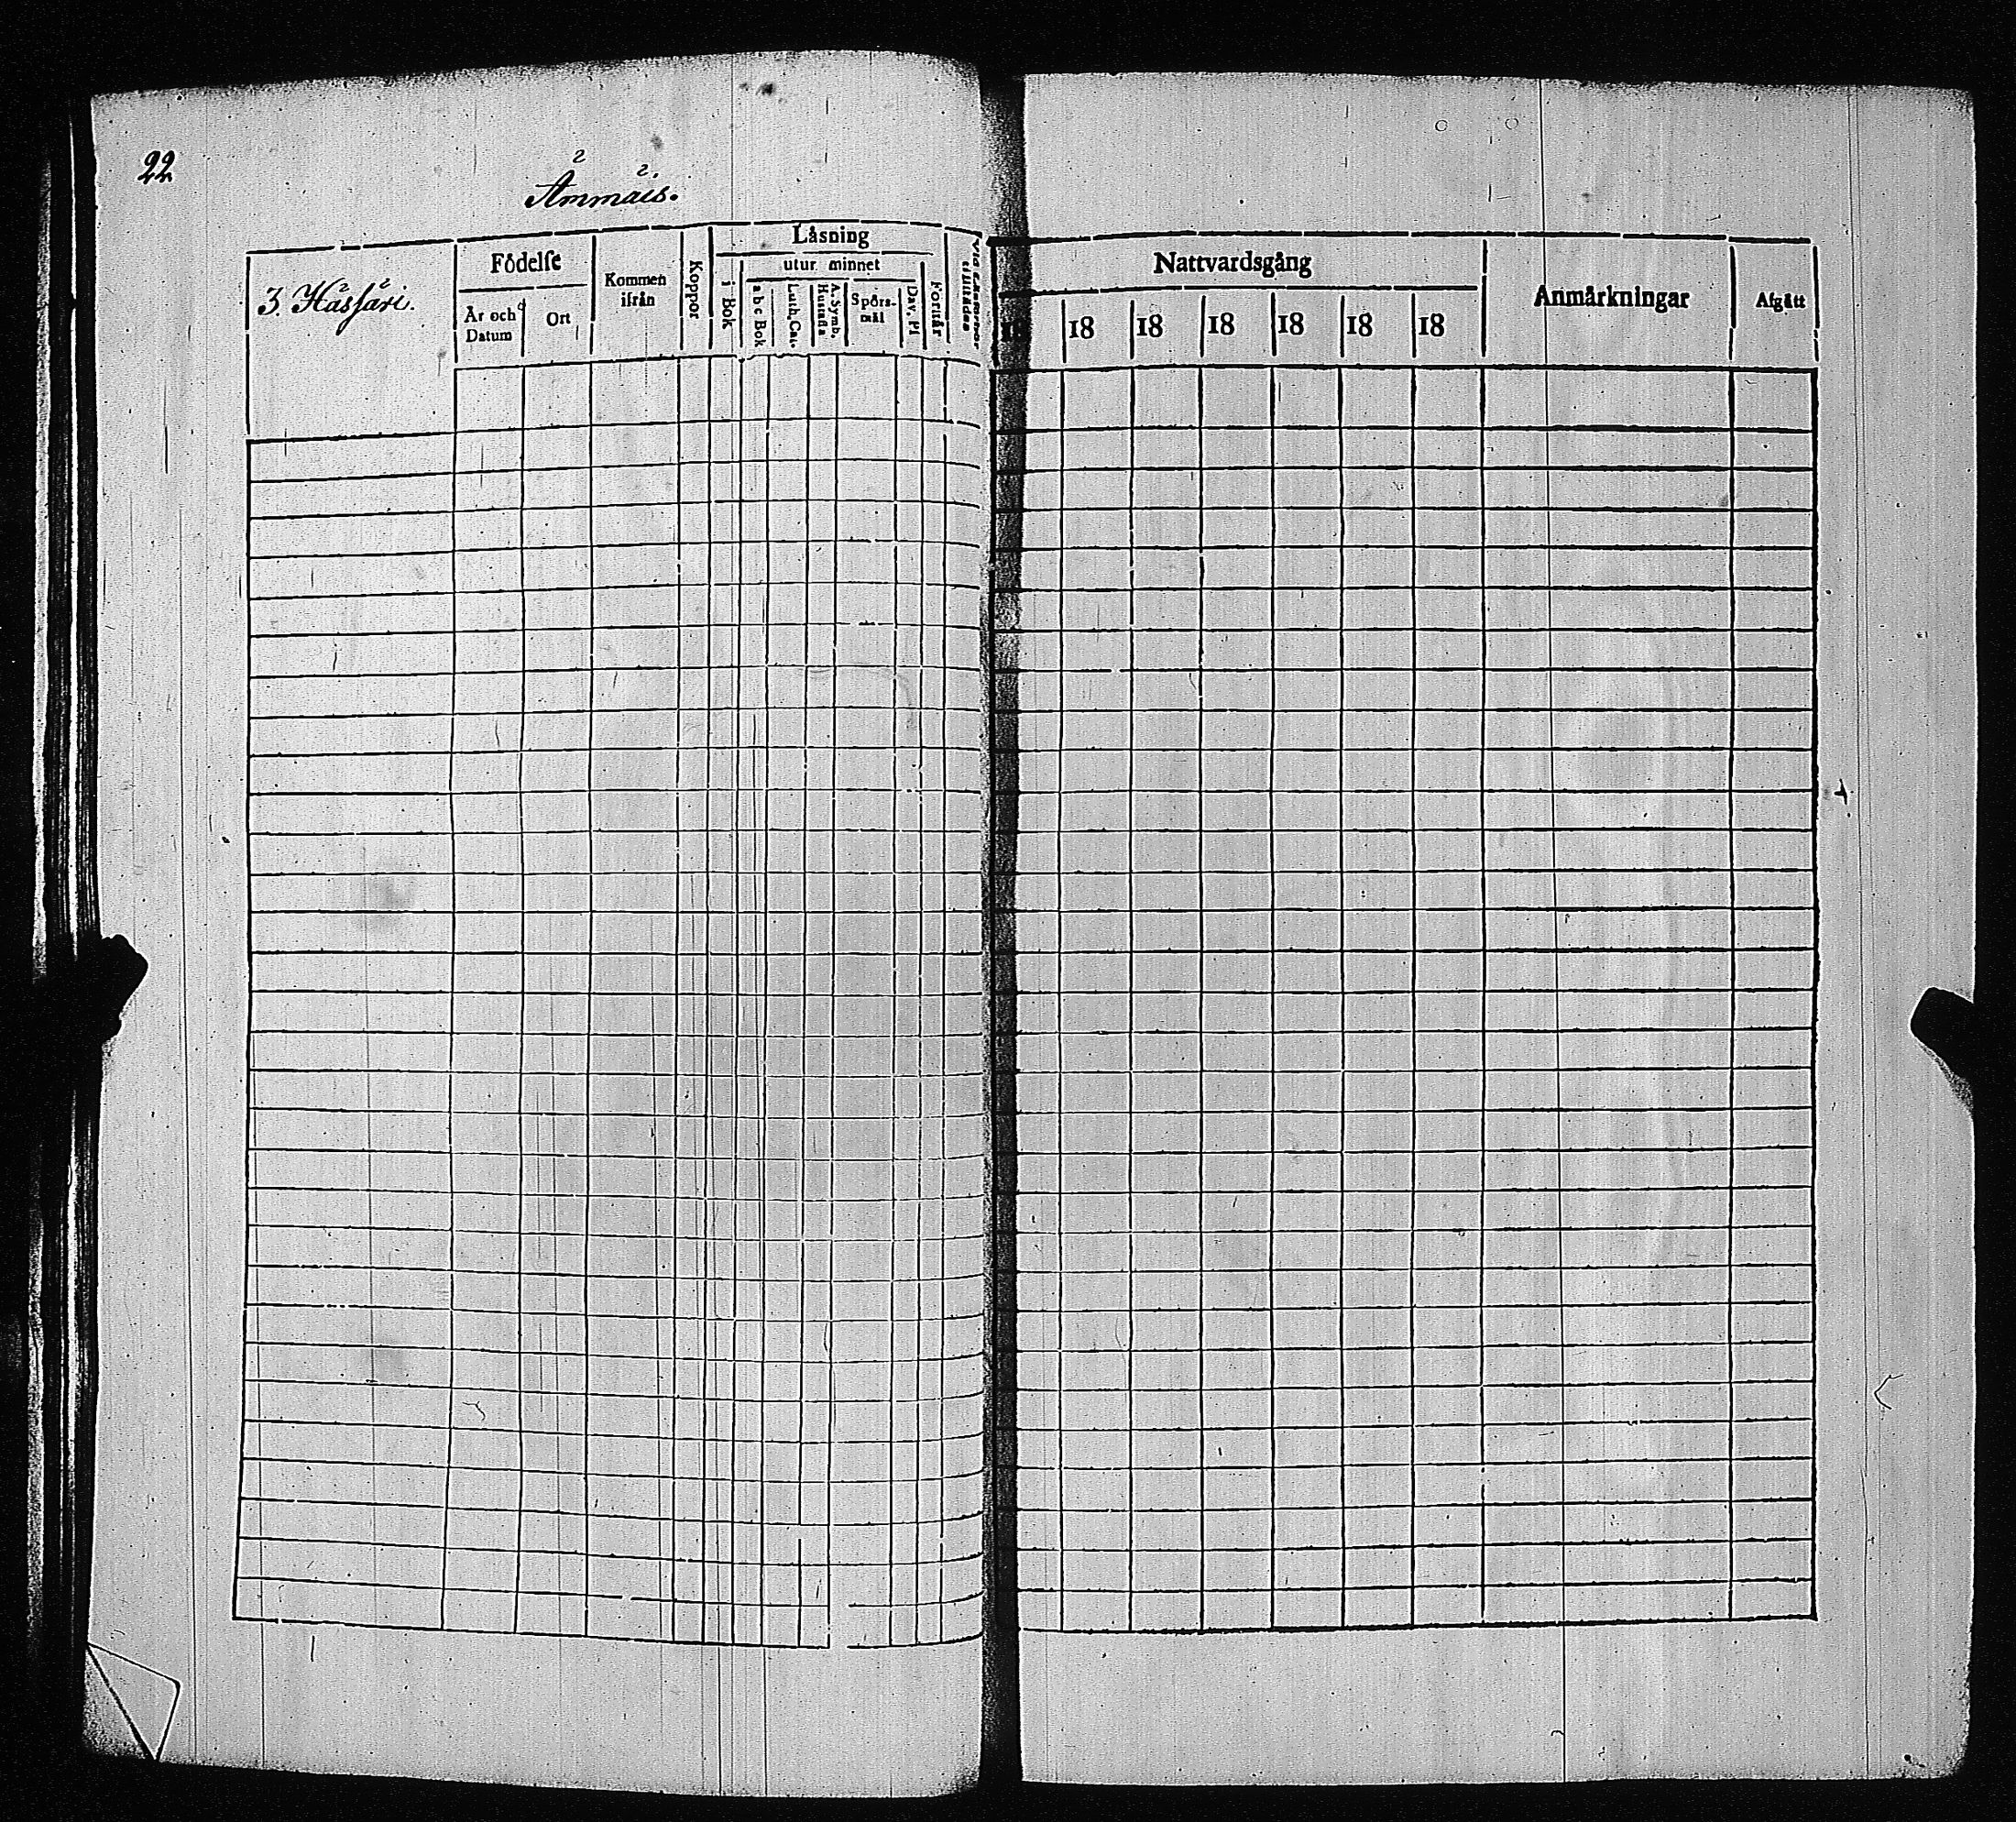 22
Ämmäis.
3. Hässäri.
Födelse
År och Datum
Ort
Kommen ifrån
Koppor
Låsning
i Bok
utur minnet
a b c Bok
Luth. Cat.
A. Symb. Hustafla
Spörs-mål
Dav. Ps
Förstår
Nattvardsgång
18 18 18 18 18 18 18
Anmårkningar
Afgått